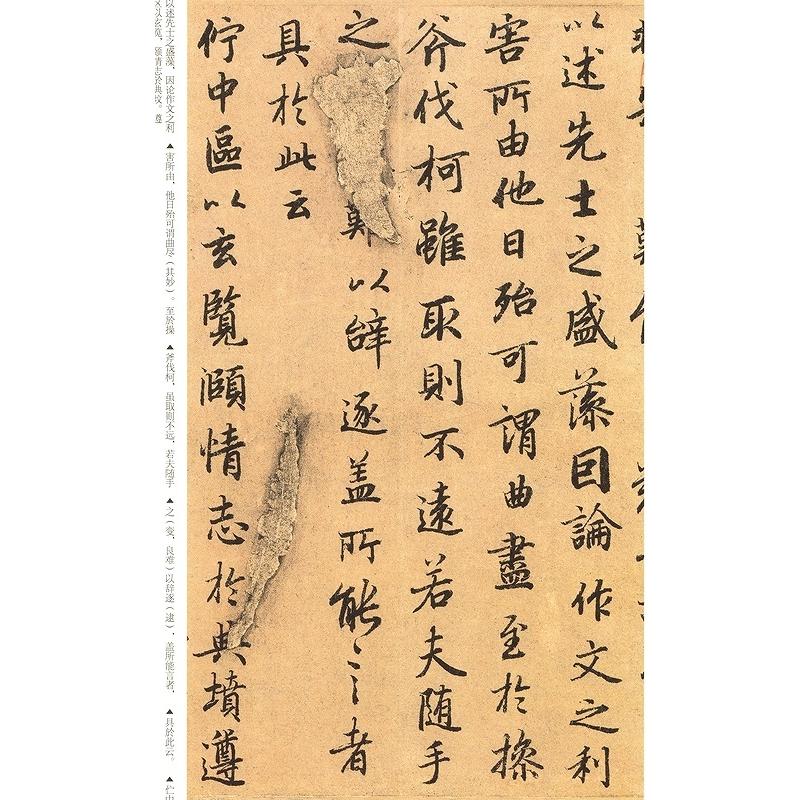 以述先士之盛藻因論作文之利
害所由他日殆可謂曲盡至於操
斧伐柯雖取則不遠若夫随手
之難以辝逐盖所能言者
具於此云
佇中區以玄覽頤情志於典墳遵
以述先士之盛藻，因论作文之利 ▲ 害所由，他日殆可谓曲尽（其妙）。至於操 ▲ 斧伐柯，虽取则不远，若夫随手 ▲ 之（变，良难）以辞逐（逮），盖所能言者， ▲ 具於此云。 ▲ 伫中
以玄览，颐情志於典坟。遵